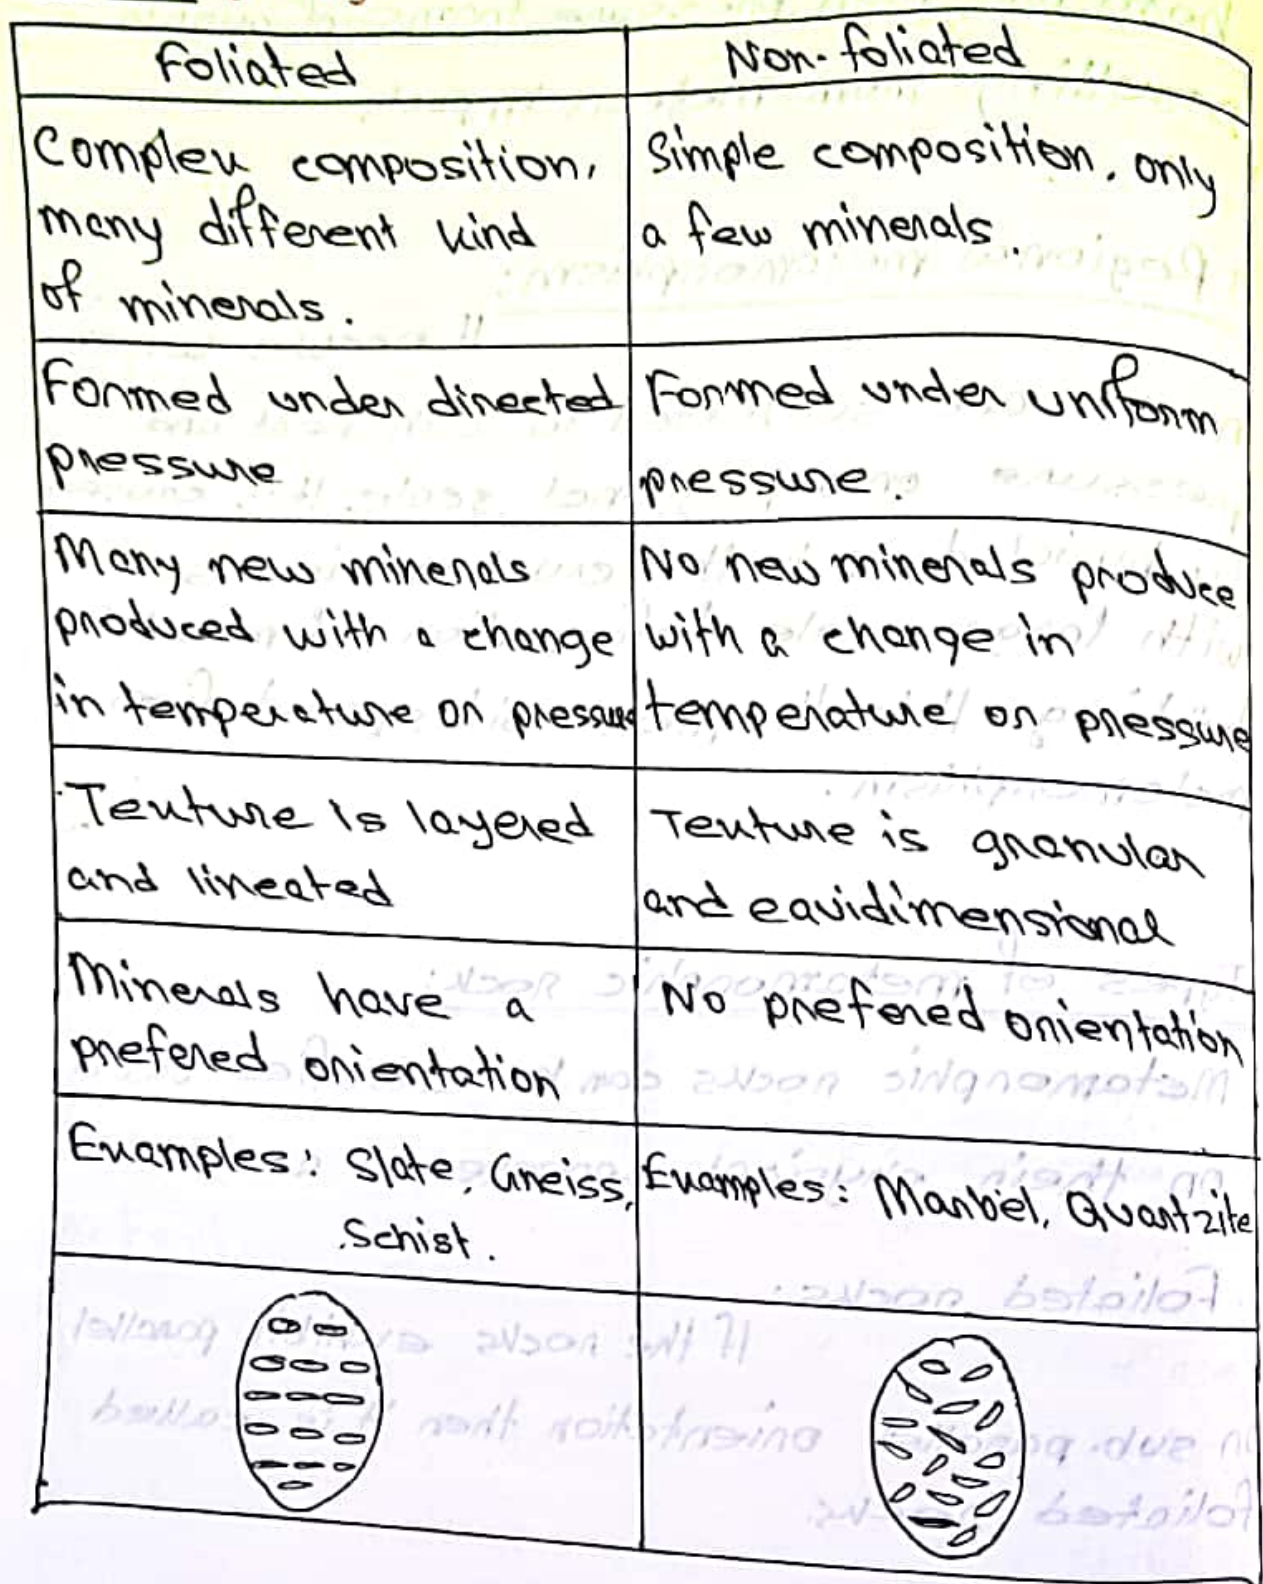 Foliated
Non-foliated
Complex composition,
many different kind
of minerals.
Simple composition, only
a few minerals.
Formed under directed
pressure
Formed under uniform
pressure.
Many new minerals
produced with a change
in temperature or pressure
No new minerals produce
with a change in
temperature or pressure
Texture is layered
and lineated
Texture is granular
and equidimensional
Minerals have a
prefered orientation
No prefered orientation
Examples: Slate, Gneiss,
Schist.
Examples: Marbel, Quartzite